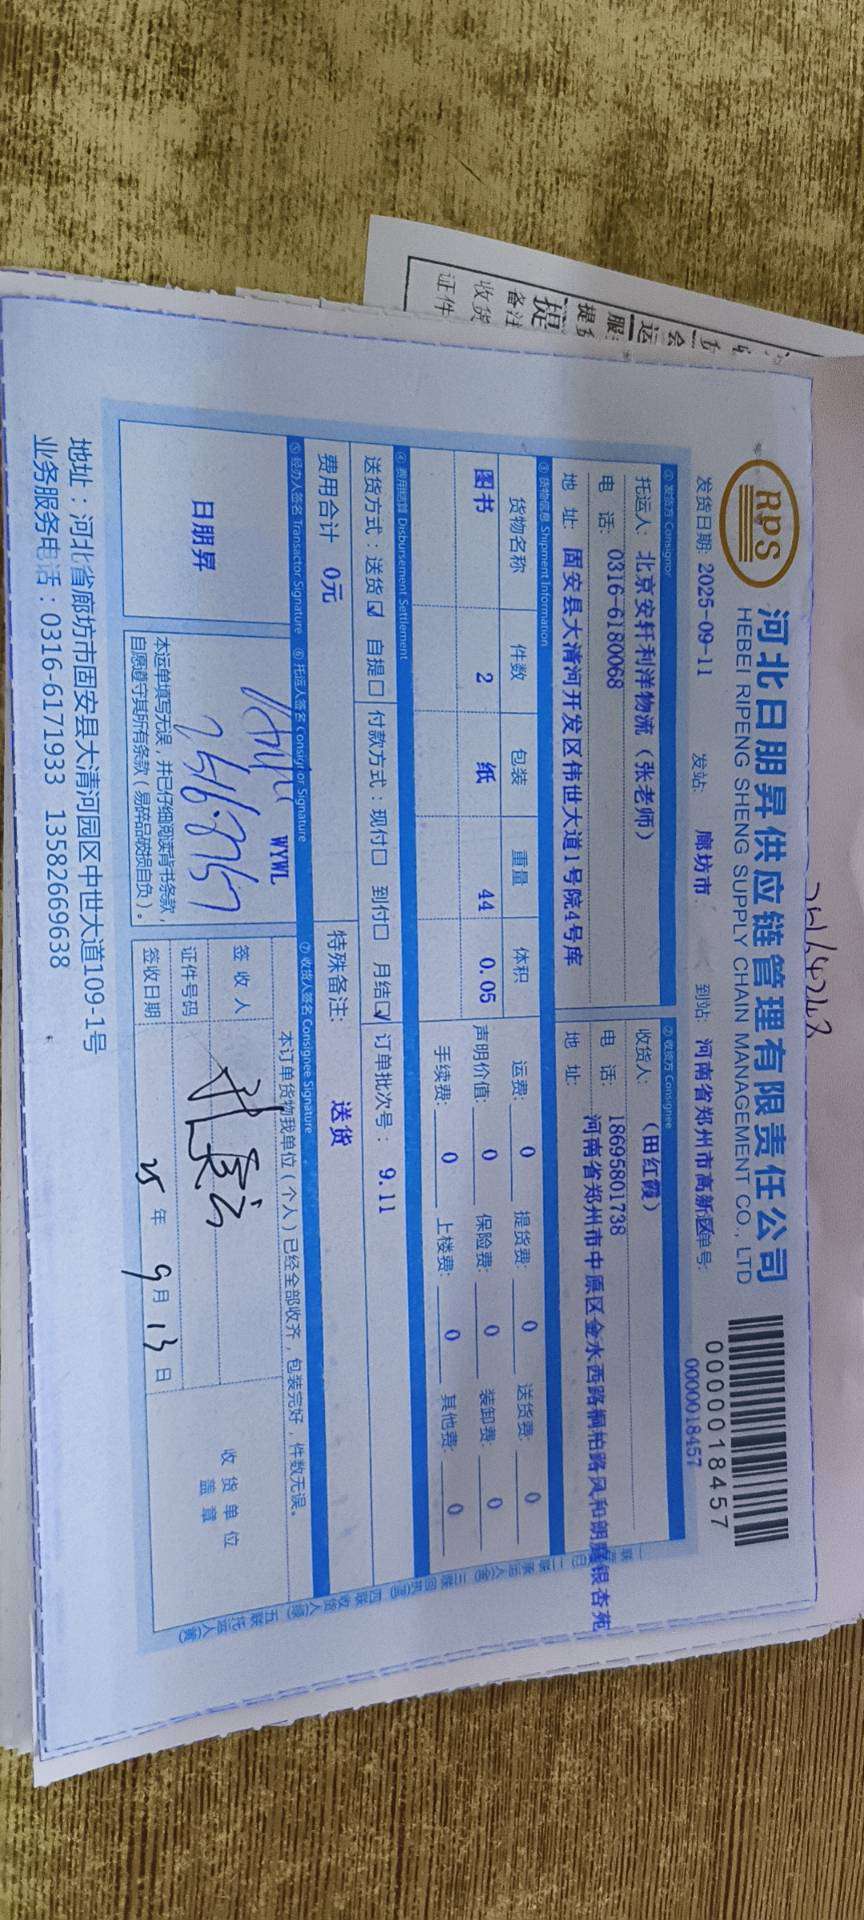 RPS
河北日朋昇供应链管理有限责任公司
HEBEI RIPENG SHENG SUPPLY CHAIN MANAGEMENT CO., LTD
0000018457
0000018457
发货日期: 2025-09-11 发站: 廊坊市 到站: 河南省郑州市高新区 单号:
① 发货方 Consignor ② 收货方 Consignee
托运人: 北京安轩利洋物流（张老师） 收货人: （田红霞）
电 话: 0316-6180068 电 话: 18695801738
地 址: 固安县大清河开发区伟世大道1号院4号库 地 址: 河南省郑州市中原区金水西路桐柏路风和朗庭银杏苑
③ 货物信息 Shipment Information
货物名称 件数 包装 重量 体积 运费: 0 提货费: 0 送货费: 0
图书 2 纸 44 0.05 声明价值: 0 保险费: 0 装卸费: 0
手续费: 0 上楼费: 0 其他费: 0
④ 费用结算 Disbursement Settlement
送货方式：送货☑ 自提□ 付款方式：现付□ 到付□ 月结☑ 订单批次号： 9.11
费用合计 0元 特殊备注: 送货
⑤ 经办人签名 Transactor Signature ⑥ 托运人签名 Consignor Signature ⑦ 收货人签名 Consignee Signature
日朋昇
WYWL
本运单填写无误，并已仔细阅读背书条款，
自愿遵守其所有条款（易碎品破损自负）。
本订单货物我单位（个人）已经全部收齐，包装完好，件数无误。
签 收 人
证件号码
签收日期 25 年 9 月 13 日
收 货 单 位
盖 章
地址：河北省廊坊市固安县大清河园区中世大道109-1号
业务服务电话：0316-6171933 13582669638
提
备注
收货
证件